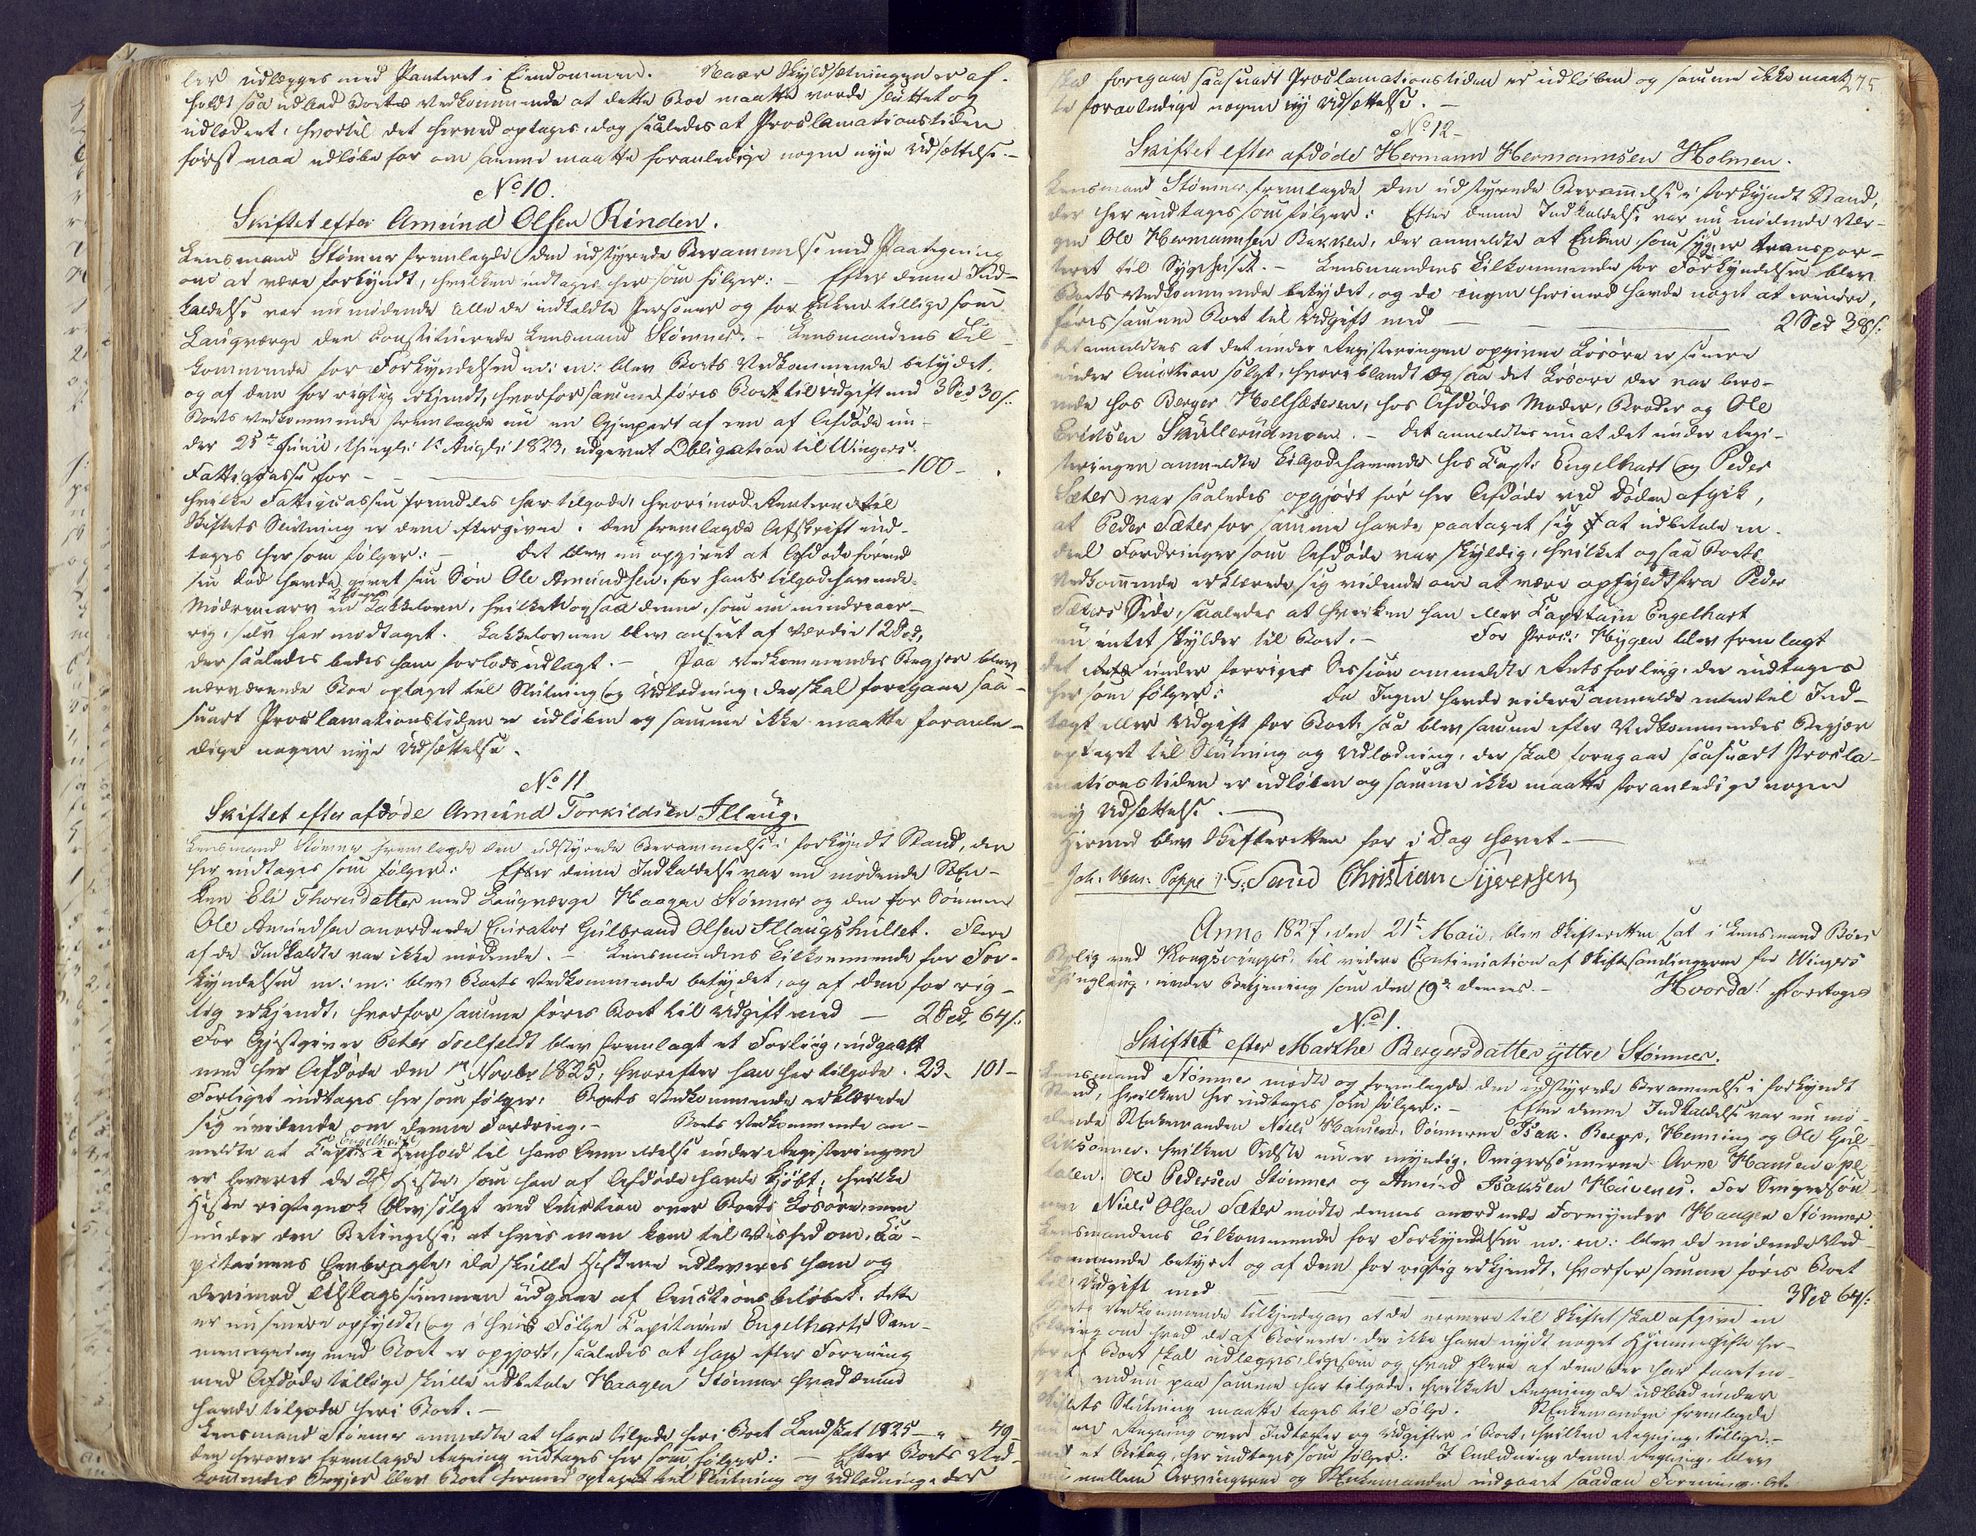 ler udlægges med Panteret i Eiendommen. Naar Skyldsætningen er af-
holdt saa udbad Boets Vedkommende at dette Boe maatte vorde sluttet og
udloddet, hvortil det herved optages, dog saaledes at Proclamationstiden
først maa udløbe for om samme maatte foranledige nogen nye Udsættelse.
No 10.
Skiftet efter Amund Olsen Rinden.
Lensmand Stømner fremlagde den udstyrede Berammelse med Paategning
om at være forkyndt, hvilken indtages her som følger: - Efter denne Ind-
kaldelse var nu mødende alle de indkaldte Personer og for Enken tillige som
Laugværge den constituerede Lensmand Stømner. - Lensmandens Til-
kommende for Forkyndelsen m: m: blev Boets Vedkommende betydet,
og af dem for rigtig erkjendt, hvorfor samme føres Boet til Udgift med 3 Spd 30 s:
Boets Vedkommende fremlagde nu en Gjenpart af en af Afdøde un-
der 25de Junii, thingl: 1te Augs: 1823, udgevet Obligation til Wingers
Fattigcasse for - 100 -
hvilke Fattigcassen fremdeles har tilgode, hvorimod Renterne til
Skiftets Slutning er dem eftergivne. Den fremlagde Afskrift ind-
tages her som følger: - Det blev nu opgivet at Afdøde førend
sin Død havde givet sin Søn Ole Amundsen, for hans tilgodehavende
Mødrenearv en 2 Etages Kakkelovn, hvilket ogsaa denne, som nu mindreaar-
rig, selv har modtaget. Kakkelovnen blev anseet af Værdie 12 Spd,
der saaledes bedes ham forlods udlagt. - Paa Vedkommendes Begjær blev
nærværende Boe optaget til Slutning og Udlodning, der skal foregaae saa-
snart Proclamationstiden er udløben og samme ikke maatte foranle-
dige nogen nye Udsættelse.
No 11
Skiftet efter afdøde Amund Torkildsen Illaug.
Lensmand Stømner fremlagde den udstyrede Berammelse i forkyndt Stand, der
her indtages som følger: Efter denne Indkaldelse var nu mødende En-
ken Eli Thoresdatter med Laugværge Haagen Stømner og den for Sønnen
Ole Amundsen anordnede Curator Gulbrand Olsen Illaugshullet. Flere
af de Indkaldte var ikke mødende. - Lensmandens Tilkommende for For-
kyndelsen m: m: blev Boets Vedkommende betydet, og af dem for rig-
tig erkjendt, hvorfor samme føres Boet til Udgift med - 2 Spd, 64 s:
For Gjestgiver Peter Tselfeldt blev fremlagt et Forliig, indgaaet
med her Afdøde den Novbr 1825, hvorefter han har tilgode. 23 - 101 -
Forliget indtages her som følger: Boets Vedkommende erklærede
sig uvidende om denne Fordring. - Boets Vedkommende an-
meldte at Capt: Engelhart i Henhold til hans Anmeldelse under Registeringen
er leveret de 2de Heste, som han af Afdøde havde kjøbt, hvilke
Heste rigtignok blev solgt ved Auction over Boets Løsøre, men
under den Betingelse, at hvis man kom til Vished om Ca-
pitainens Eenbragte, da skulle Hestene udleveres ham og
derimod Tilslagssummen udgaae af Auctionsbeløbet. Dette
er nu senere opfyldt, og i hvis Følge Capitaine Engelharts Sam-
menregning med Boet er opgjort, saaledes at han efter Forening
med Afdøde tillige skulle udbetale Haagen Stømner hvad denne
havde tilgode her i Boet. -
Lensmand Stømner anmeldte at have tilgode her i Boet Landskat 1825 - " - 49 -
den herover fremlagde Regning indtages her som følger: - Efter Boets Ved-
kommendes Begjær blev Boet hermed optaget til Slutning og Udlodning, der
275
skal foregaae saasnart Proclamationstiden er udløben og samme ikke maat-
te foranledige nogen ny Udsættelse. -
No 12 -
Skiftet efter afdøde Hermann Hermannsen Holmen.
Lensmand Stømner fremlagde den udstyrede Berammelse i forkyndt Stand,
der her indtages som følger: Efter denne Indkaldelse var nu mødende Vær-
gen Ole Hermannsen Bakken, der anmeldte at Enken, som syg er transpor-
teret til Sygehuset. - Lensmandens Tilkommende for Forkyndelsen blev
Boets Vedkommende betydet, og da ingen herimod havde noget at erindre,
føres samme Boet til Udgift med - 2 Spd 38 s:
Det anmeldtes at det under Registeringen opgivne Løsøre er senere
under Auction solgt, hvoriblandt ogsaa det Løsøre der var bero-
ende hos Berger Hollsæteren, hos Afdødes Moder, Broder og Ole
Erichsen Skullerudmoen. - Det anmeldtes nu at det under Regi-
steringen anmeldte Tilgodehavende hos Capt: Engelhart og Peder
Sæter var saaledes opgjort før her Afdøde ved Døden afgik,
at Peder Sæter for samme havde paataget sig at udbetale en
deel Fordringer som Afdøde var skyldig, hvilket ogsaa Boets
Vedkommende erklærede sig vidende om at være opfyldt fra Peder
Sæters Side, saaledes at hverken han eller Capitain Engelhart
nu intet skylder til Boet. - For Proc: Hygen blev fremlagt
det under forrige Session anmeldte Retsforliig, der indtages
her som følger: Da Ingen havde videre at anmelde enten til Ind-
tægt eller Udgift for Boet, saa blev samme efter Vedkommendes Begjær
optaget til Slutning og Udlodning, der skal foregaae saasnart Procla-
mationstiden er udløben og samme ikke maatte foranledige nogen
ny Udsættelse. -
Hermed blev Skifteretten for i Dag hævet. -
Joh: Chr: Poppe. G: Sand Christian Syversen
Anno 1827, den 21de Maii, blev Skifteretten sat i Lensmand Bøes
Bolig ved Kongsvinger, til videre Continuation af Skiftesamlingerne for Wingers
Thinglaug, under Betjening som den 19de dennes. - Hvorda! foretoges
No 1.
Skiftet efter Marthe Bergersdatter yttre Stømner.
Lensmand Stømner mødte og fremlagde den udstyrede Berammelse i forkyndt
Stand, hvilken her indtages som følger: - Efter denne Indkaldelse var nu mø-
dende Enkemanden Niels Hansen, Sønnerne Isak, Berger, Henning og Ole Gul-
liksønner, hvilken Sidste nu er myndig, Svigersønnerne Arne Hansen
Ole Pedersen Stømner og Amund Isaksen Huvenes. For Svigersøn-
nen Niels Olsen Sæter mødte dennes anordnede Formynder Haagen Stømner.
Lensmandens Tilkommende for Forkyndelsen m: m: blev de mødende Ved-
kommende betydet og af dem for rigtig erkjendt, hvorfor samme føres Boet
til Udgift med - 3 Spd 64 s:
Boets Vedkommende tilkjendegav at de nærmere til Skiftet skal afgive en
Erklæring om hvad de af Børnene, der ikke have nydt noget Hjemmegifte her-
for af Boet skal udlægges, ligesom og hvad flere af dem der har faaet no-
get, endnu paa samme har tilgode, hvilken Regning de udbad under
Skiftets Slutning maatte tages til Følge. Enkemanden fremlagde
nu en Regning over Indtægter og Udgifter i Boet, hvilken Regning tillige-
med et Bilag, her indtages som følger: I Anledning denne Regning, blev
nu mellem Arvingerne og Enkemanden indgaaet saadan Forening: at